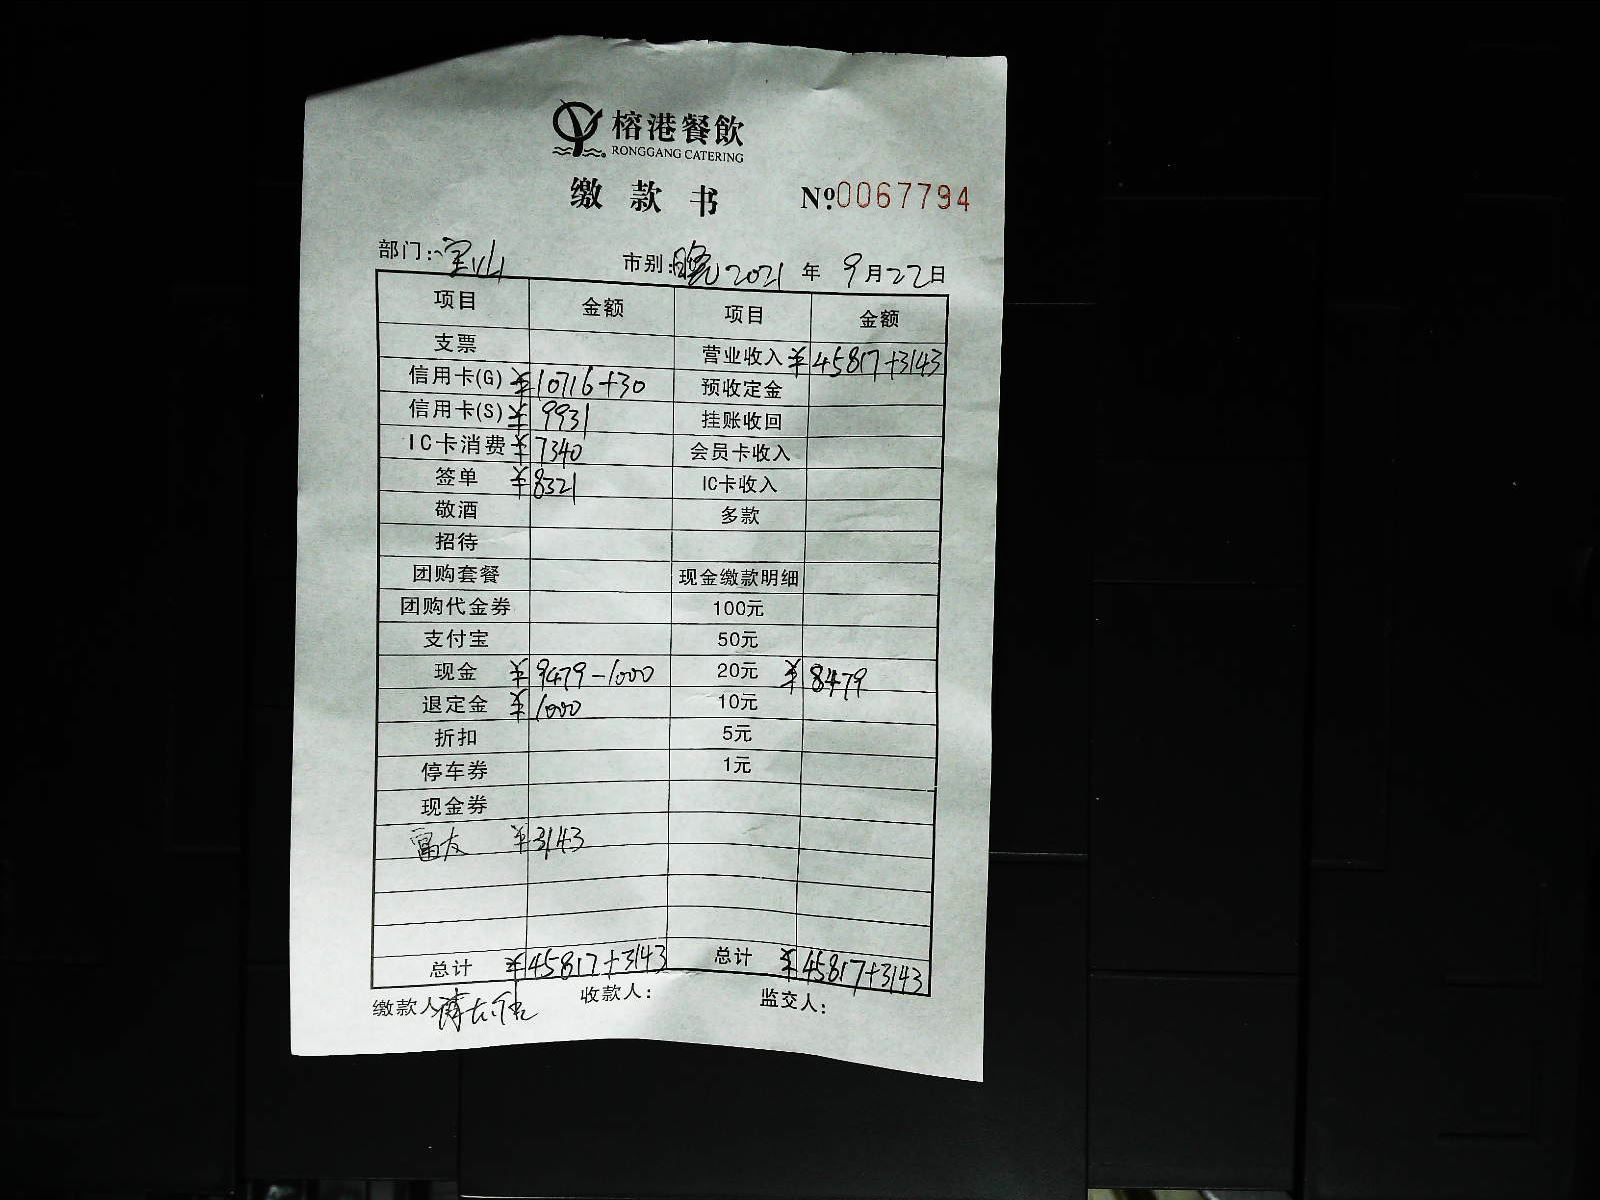 榕港餐飲
RONGGANG CATERING
缴款书 №0067794
部门：宝山 市别：晚 2021 年 9 月 22 日
项目 金额 项目 金额
支票 营业收入 ¥45817+3143
信用卡(G) ¥10716+30 预收定金
信用卡(S) ¥9931 挂账收回
IC卡消费 ¥7340 会员卡收入
签单 ¥8321 IC卡收入
敬酒 多款
招待
团购套餐 现金缴款明细
团购代金券 100元
支付宝 50元
现金 ¥9479-1000 20元 ¥8479
退定金 ¥1000 10元
折扣 5元
停车券 1元
现金券
富友 ¥3143
总计 ¥45817+3143 总计 ¥45817+3143
缴款人 收款人： 监交人：